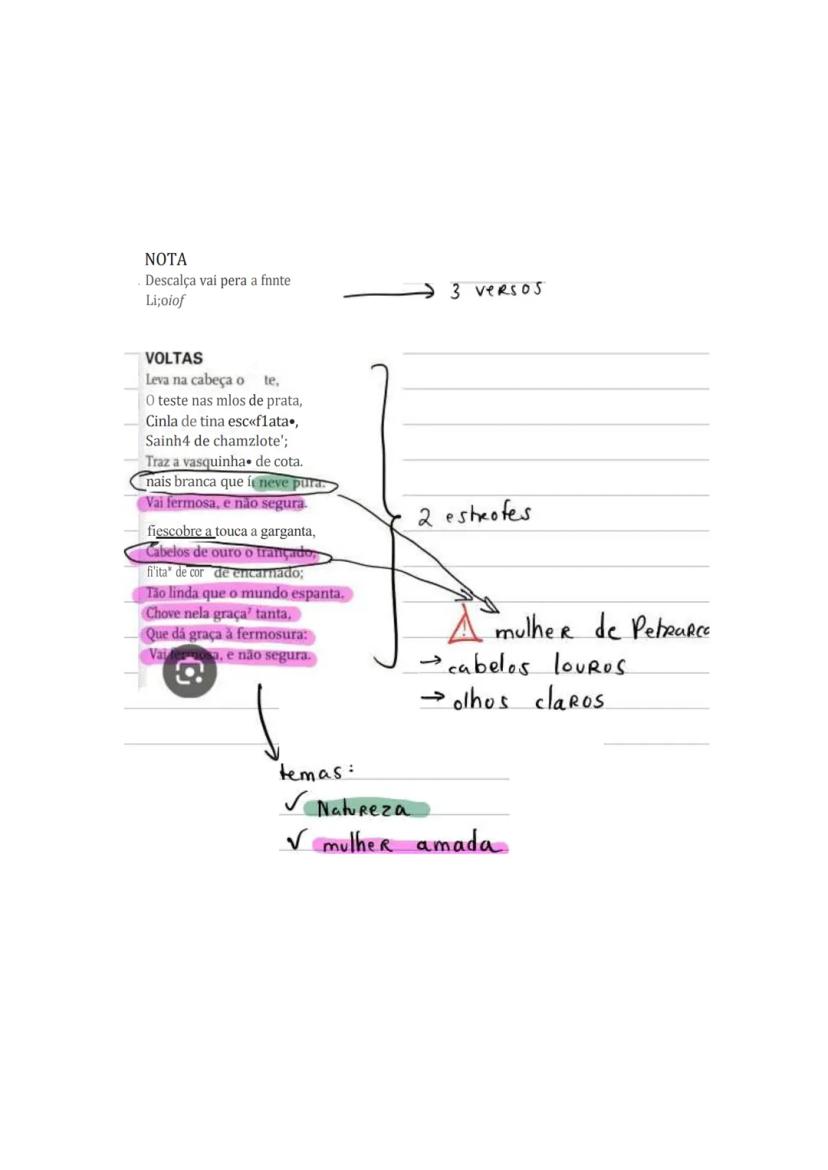 NOTA
Descalça vai pera a fnnte
Li;oiof
3 versos
VOLTAS
Leva na cabeça o te,
O teste nas mlos de prata,
Cinla de tina esc«f1ata•,
Sainh4 de chamzlote';
Traz a vasquinha• de cota.
nais branca que í neve pura.
Vai fermosa, e não segura.
2 estrofes
fiescobre a touca a garganta,
Cabelos de ouro o trançado,
fi'ita" de cor de encarnado;
Tão linda que o mundo espanta.
Chove nela graça⁷ tanta,
Que dá graça à fermosura:
Vai fermosa, e não segura.
mulher de Petrarca
→ cabelos louros
→ olhos claros
temas:
✓ Natureza
✓ mulher amada